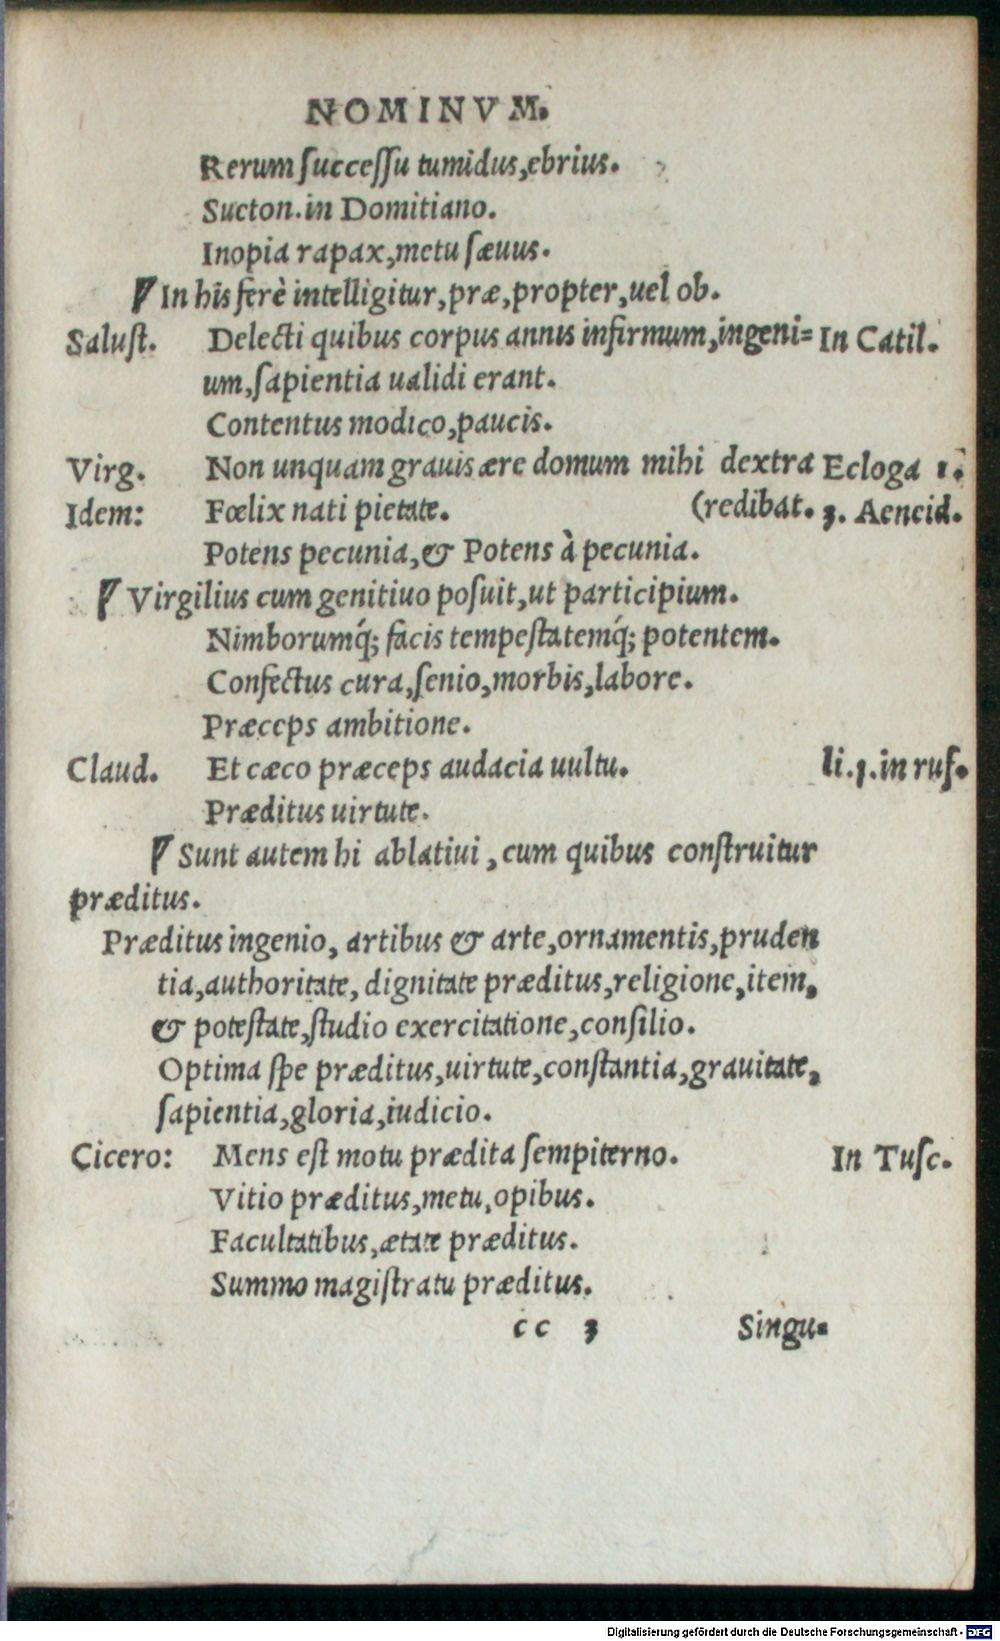 NOMINVM.
Rerum ſucceſſu tumidus,ebrius.
Sueton.in Domitiano.
Inopia rapax,metu ſæuus.
¶ In his ferè intelligitur,præ,propter,uel ob.
Saluſt. Delecti quibus corpus annis infirmum,ingeni= In Catil.
um,ſapientia ualidi erant.
Contentus modico,paucis.
Virg. Non unquam grauis ære domum mihi dextra Ecloga 1.
Idem: Fœlix nati pietate. (redibat. 3. Aeneid.
Potens pecunia,& Potens à pecunia.
¶ Virgilius cum genitiuo poſuit,ut participium.
Nimborumq́; facis tempeſtatemq́; potentem.
Confectus cura,ſenio,morbis,labore.
Præceps ambitione.
Claud. Et cæco præceps audacia uultu. li.1.in ruf.
Præditus uirtute.
¶ Sunt autem hi ablatiui, cum quibus conſtruitur
præditus.
Præditus ingenio, artibus & arte,ornamentis,pruden
tia,authoritate, dignitate præditus,religione,item,
& poteſtate,ſtudio exercitatione,conſilio.
Optima ſpe præditus,uirtute,conſtantia,grauitate,
ſapientia,gloria,iudicio.
Cicero: Mens eſt motu prædita ſempiterno. In Tuſc.
Vitio præditus,metu,opibus.
Facultatibus,ætate præditus.
Summo magiſtratu præditus.
cc 3 Singu=
Digitalisierung gefördert durch die Deutsche Forschungsgemeinschaft - DFG